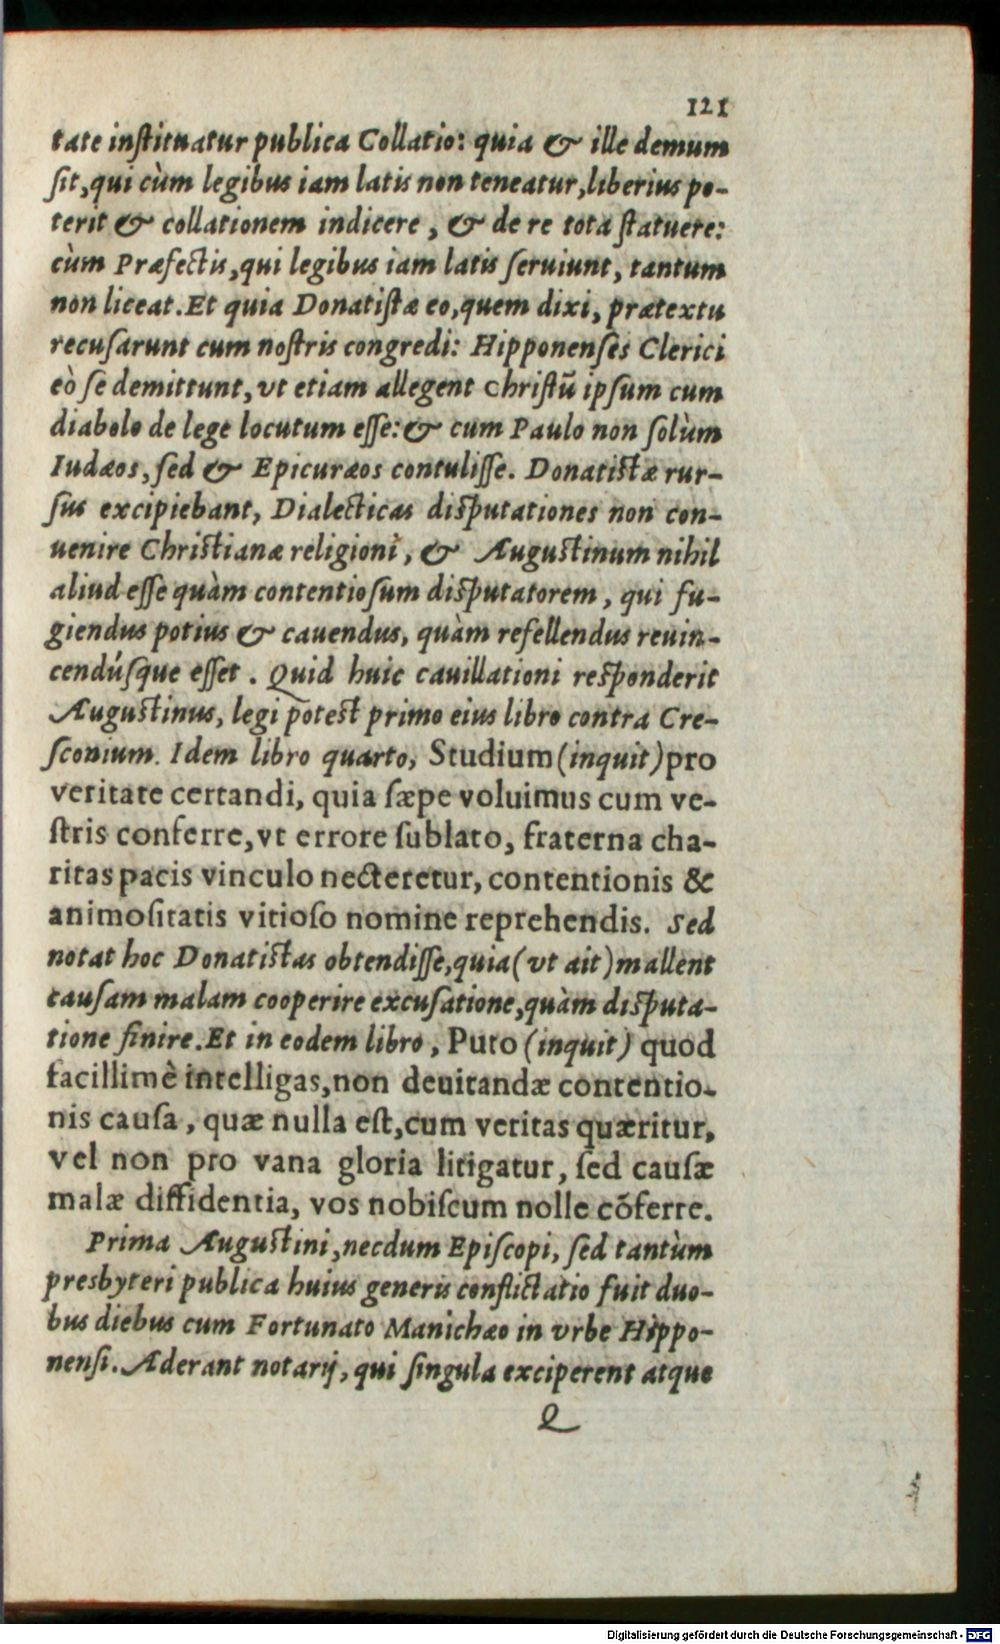 121
tate inſtituatur publica Collatio: quia & ille demum
ſit, qui cùm legibus iam latis non teneatur, liberius po-
terit & collationem indicere, & de re tota ſtatuere:
cùm Præfectis, qui legibus iam latis ſeruiunt, tantum
non liceat. Et quia Donatiſtæ eo, quem dixi, prætextu
recuſarunt cum noſtris congredi: Hipponenſes Clerici
eò ſe demittunt, vt etiam allegent Chriſtū ipſum cum
diabolo de lege locutum eſſe: & cum Paulo non ſolùm
Iudæos, ſed & Epicuræos contuliſſe. Donatiſtæ rur-
ſus excipiebant, Dialecticas diſputationes non con-
uenire Chriſtianæ religioni, & Auguſtinum nihil
aliud eſſe quàm contentioſum diſputatorem, qui fu-
giendus potius & cauendus, quàm refellendus reuin-
cendúſque eſſet. Quid huic cauillationi reſponderit
Auguſtinus, legi poteſt primo eius libro contra Cre-
ſconium. Idem libro quarto, Studium (inquit) pro
veritate certandi, quia ſæpe voluimus cum ve-
ſtris conferre, vt errore ſublato, fraterna cha-
ritas pacis vinculo necteretur, contentionis &
animoſitatis vitioſo nomine reprehendis. Sed
notat hoc Donatiſtas obtendiſſe, quia (vt ait) mallent
cauſam malam cooperire excuſatione, quàm diſputa-
tione finire. Et in eodem libro, Puto (inquit) quod
facillimè intelligas, non deuitandæ contentio-
nis cauſa, quæ nulla eſt, cum veritas quæritur,
vel non pro vana gloria litigatur, ſed cauſæ
malæ diffidentia, vos nobiſcum nolle cōferre.
Prima Auguſtini, necdum Epiſcopi, ſed tantùm
presbyteri publica huius generis conflictatio fuit duo-
bus diebus cum Fortunato Manichæo in vrbe Hippo-
nenſi. Aderant notarij, qui ſingula exciperent atque
Q
Digitalisierung gefördert durch die Deutsche Forschungsgemeinschaft - DFG